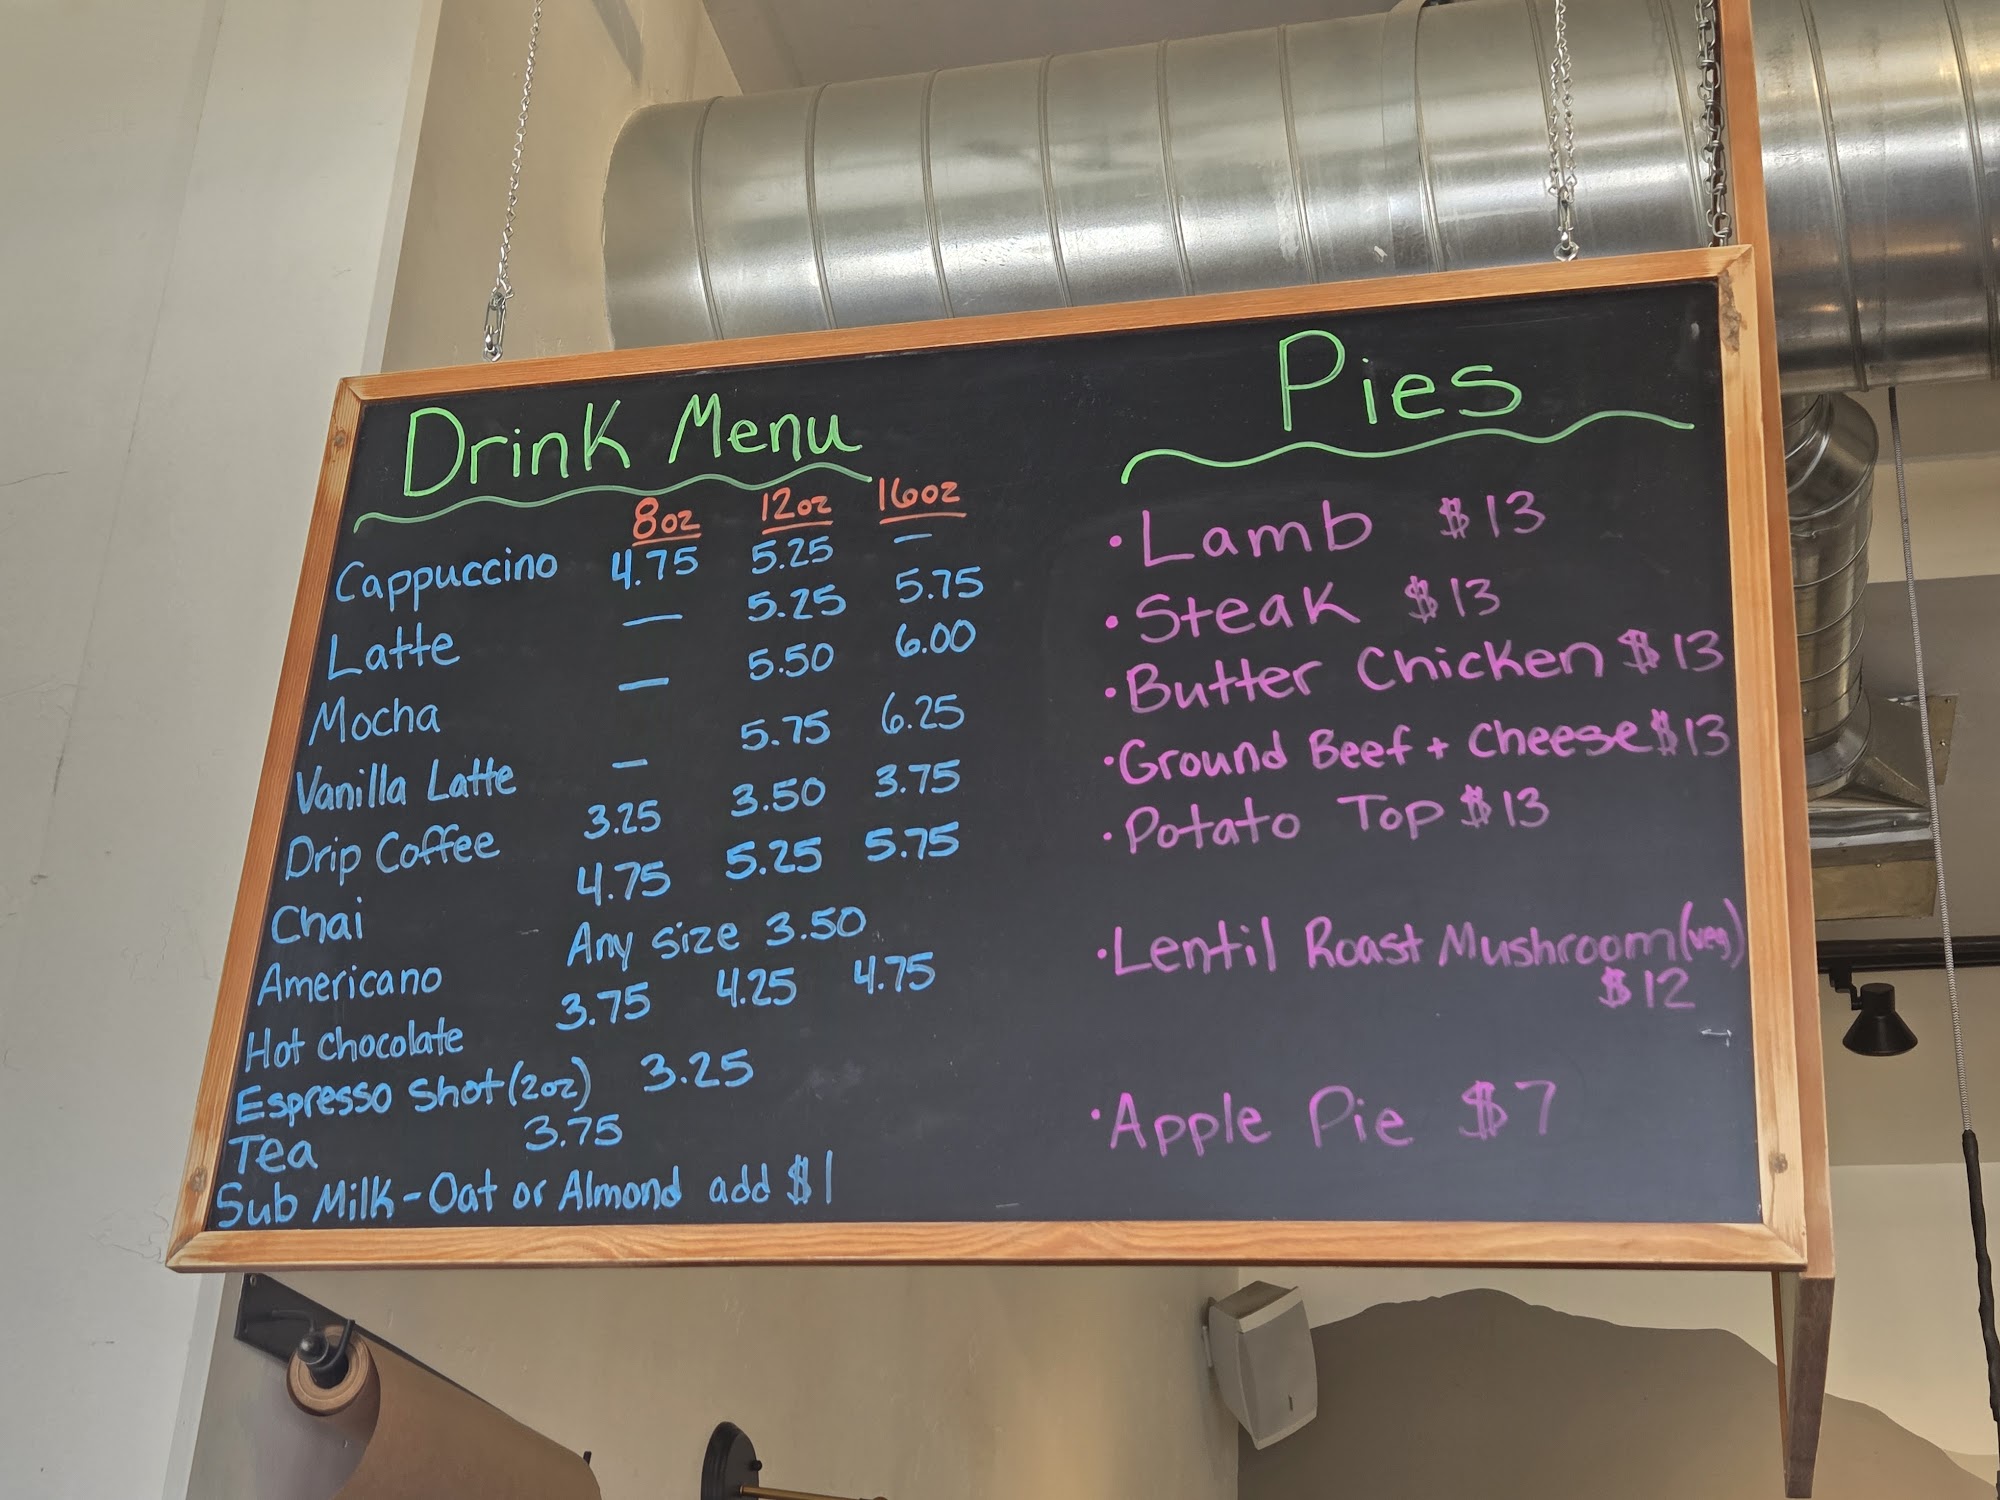 Drink Menu
8oz 12oz 16oz
Cappuccino 4.75 5.25 —
Latte — 5.25 5.75
Mocha — 5.50 6.00
Vanilla Latte — 5.75 6.25
Drip Coffee 3.25 3.50 3.75
Chai 4.75 5.25 5.75
Americano Any size 3.50
Hot chocolate 3.75 4.25 4.75
Espresso Shot (2oz) 3.25
Tea 3.75
Sub Milk - Oat or Almond add $1
Pies
• Lamb $13
• Steak $13
• Butter Chicken $13
• Ground Beef + Cheese $13
• Potato Top $13
• Lentil Roast Mushroom (veg)
$12
• Apple Pie $7